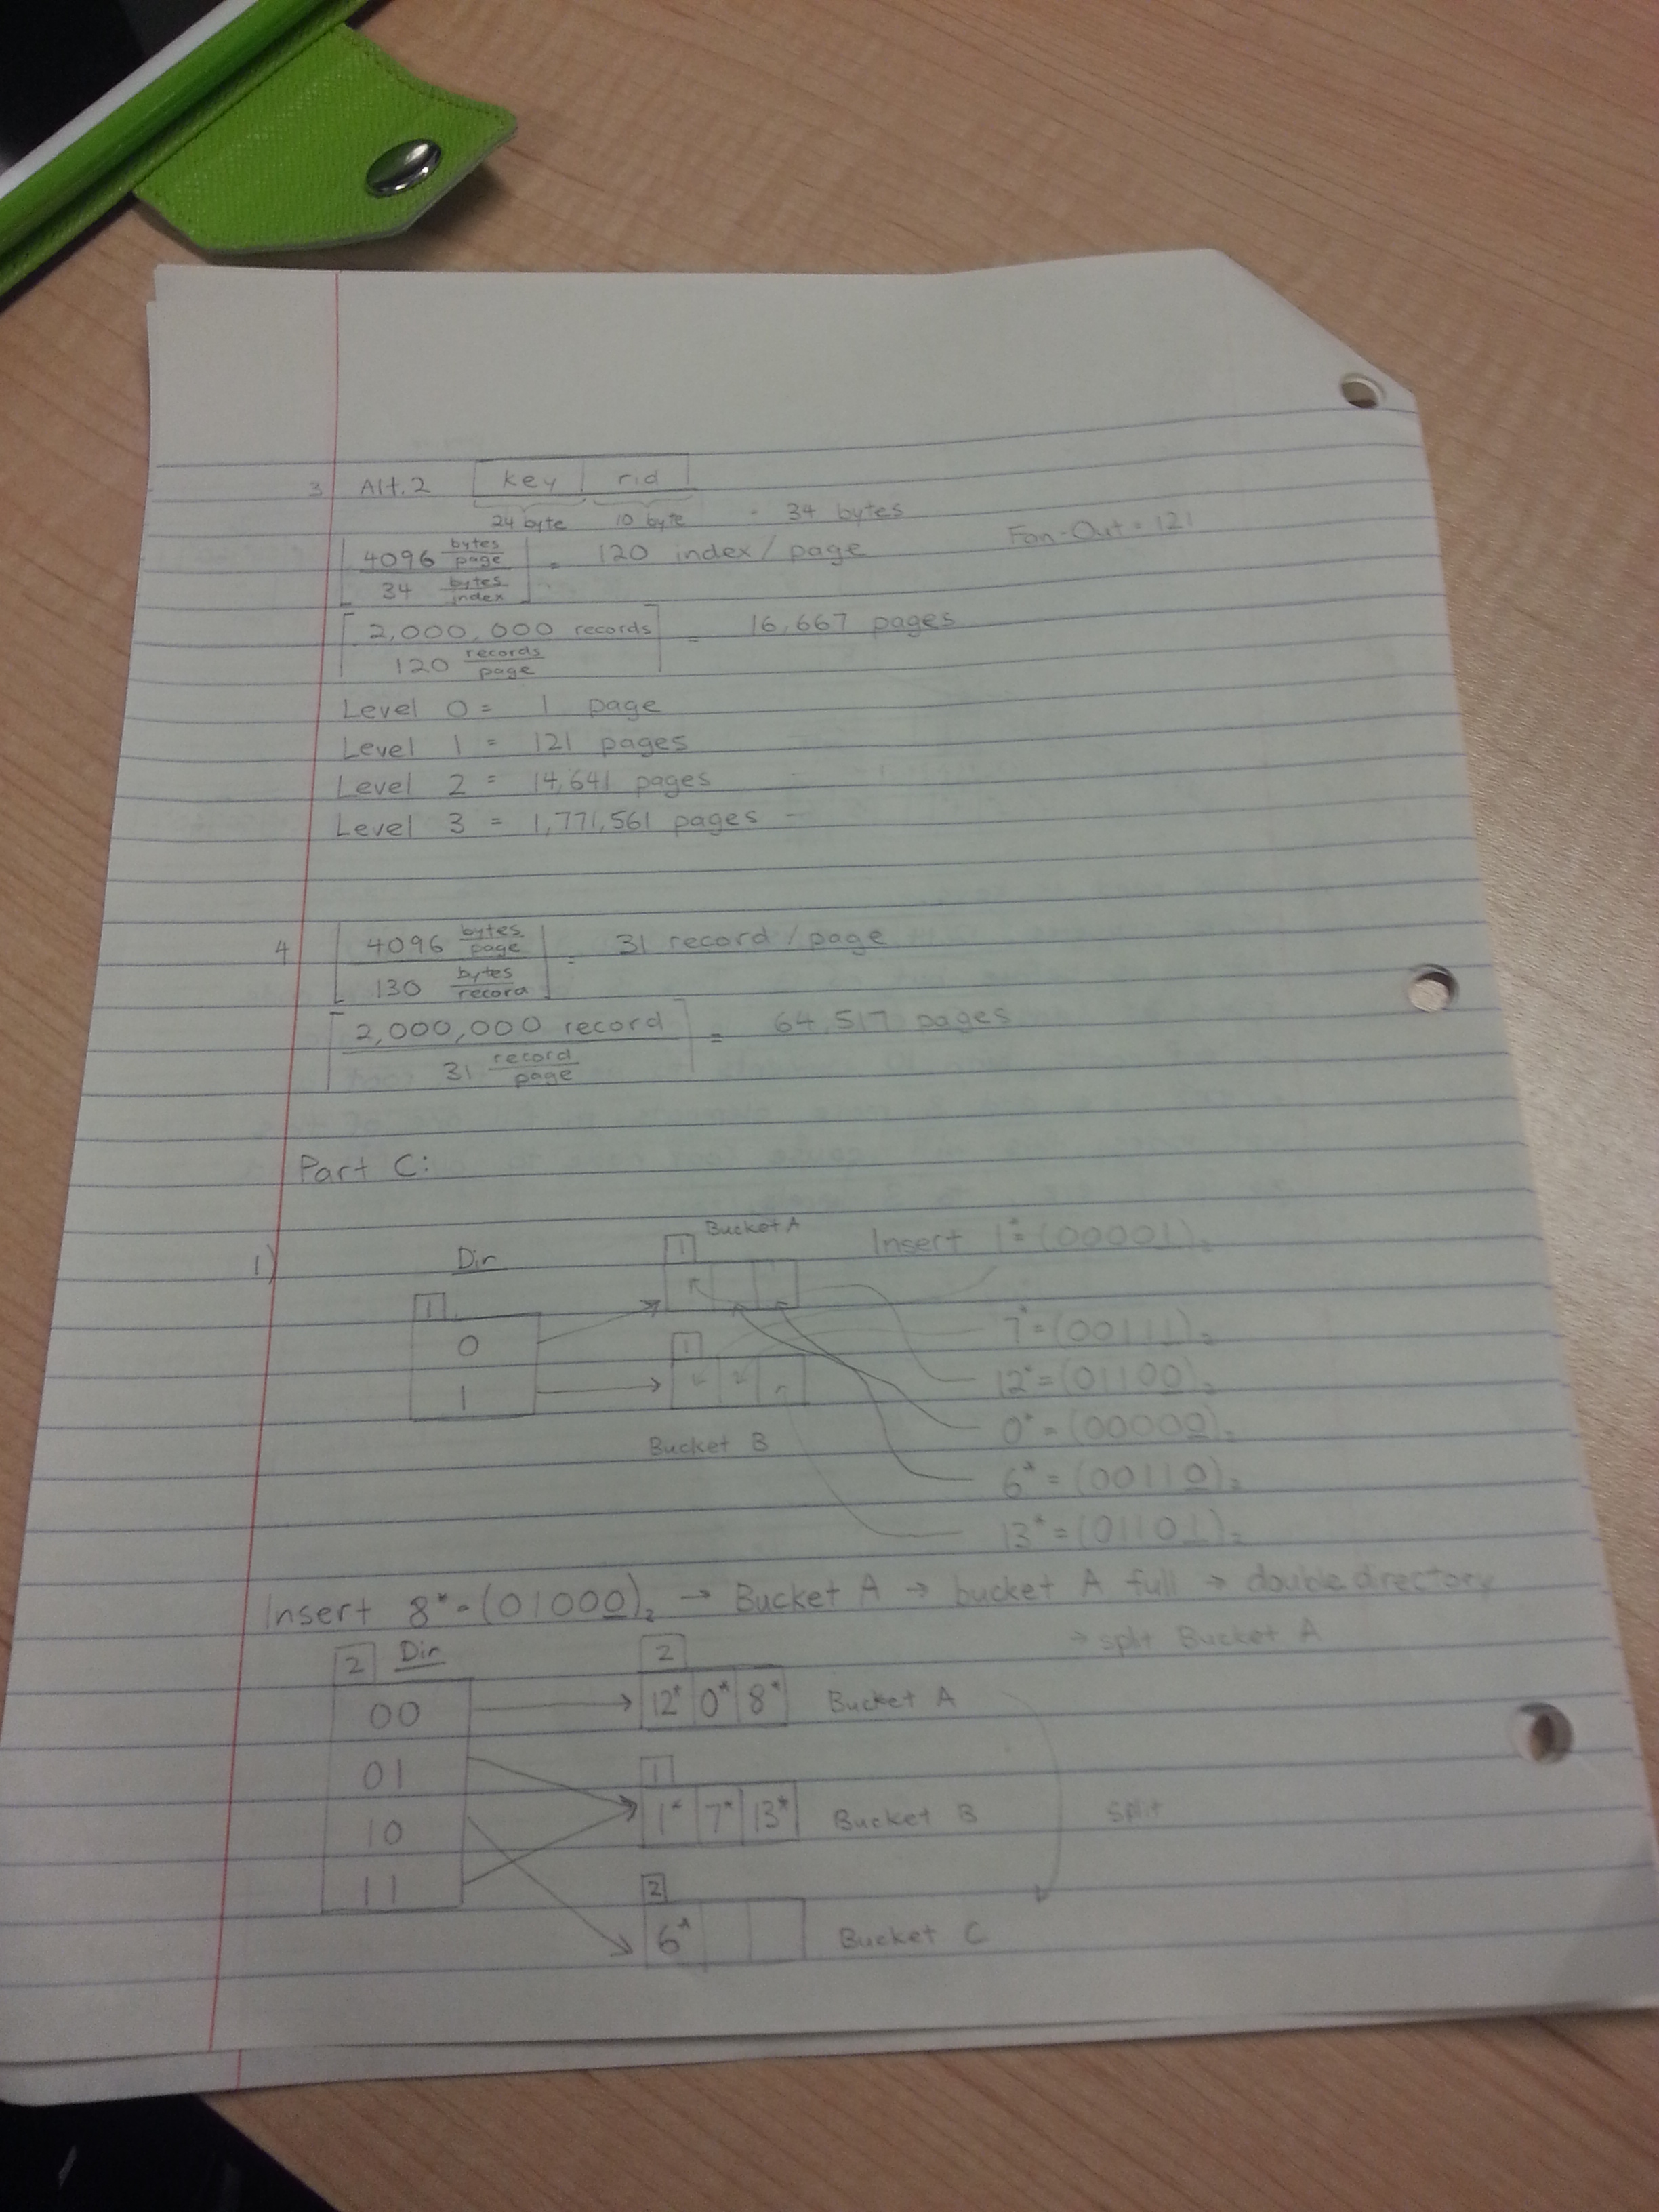 3 Alt.2 key rid
24 byte 10 byte = 34 bytes
⌊4096 bytes/page / 34 bytes/index⌋ = 120 index/page Fan-Out = 121
⌈2,000,000 records / 120 records/page⌉ = 16,667 pages
Level 0 = 1 page
Level 1 = 121 pages
Level 2 = 14,641 pages
Level 3 = 1,771,561 pages
4 ⌊4096 bytes/page / 130 bytes/record⌋ = 31 record/page
⌈2,000,000 record / 31 record/page⌉ = 64,517 pages
Part C:
1) Dir
1
0
1
Bucket A
1
1
Bucket B
Insert 1* = (00001)₂
7* = (00111)₂
12* = (01100)₂
0* = (00000)₂
6* = (00110)₂
13* = (01101)₂
Insert 8* = (01000)₂ → Bucket A → bucket A full → double directory
→ split Bucket A
2 Dir
00
01
10
11
2
12* 0* 8* Bucket A
1
1* 7* 13* Bucket B
split
2
6* Bucket C